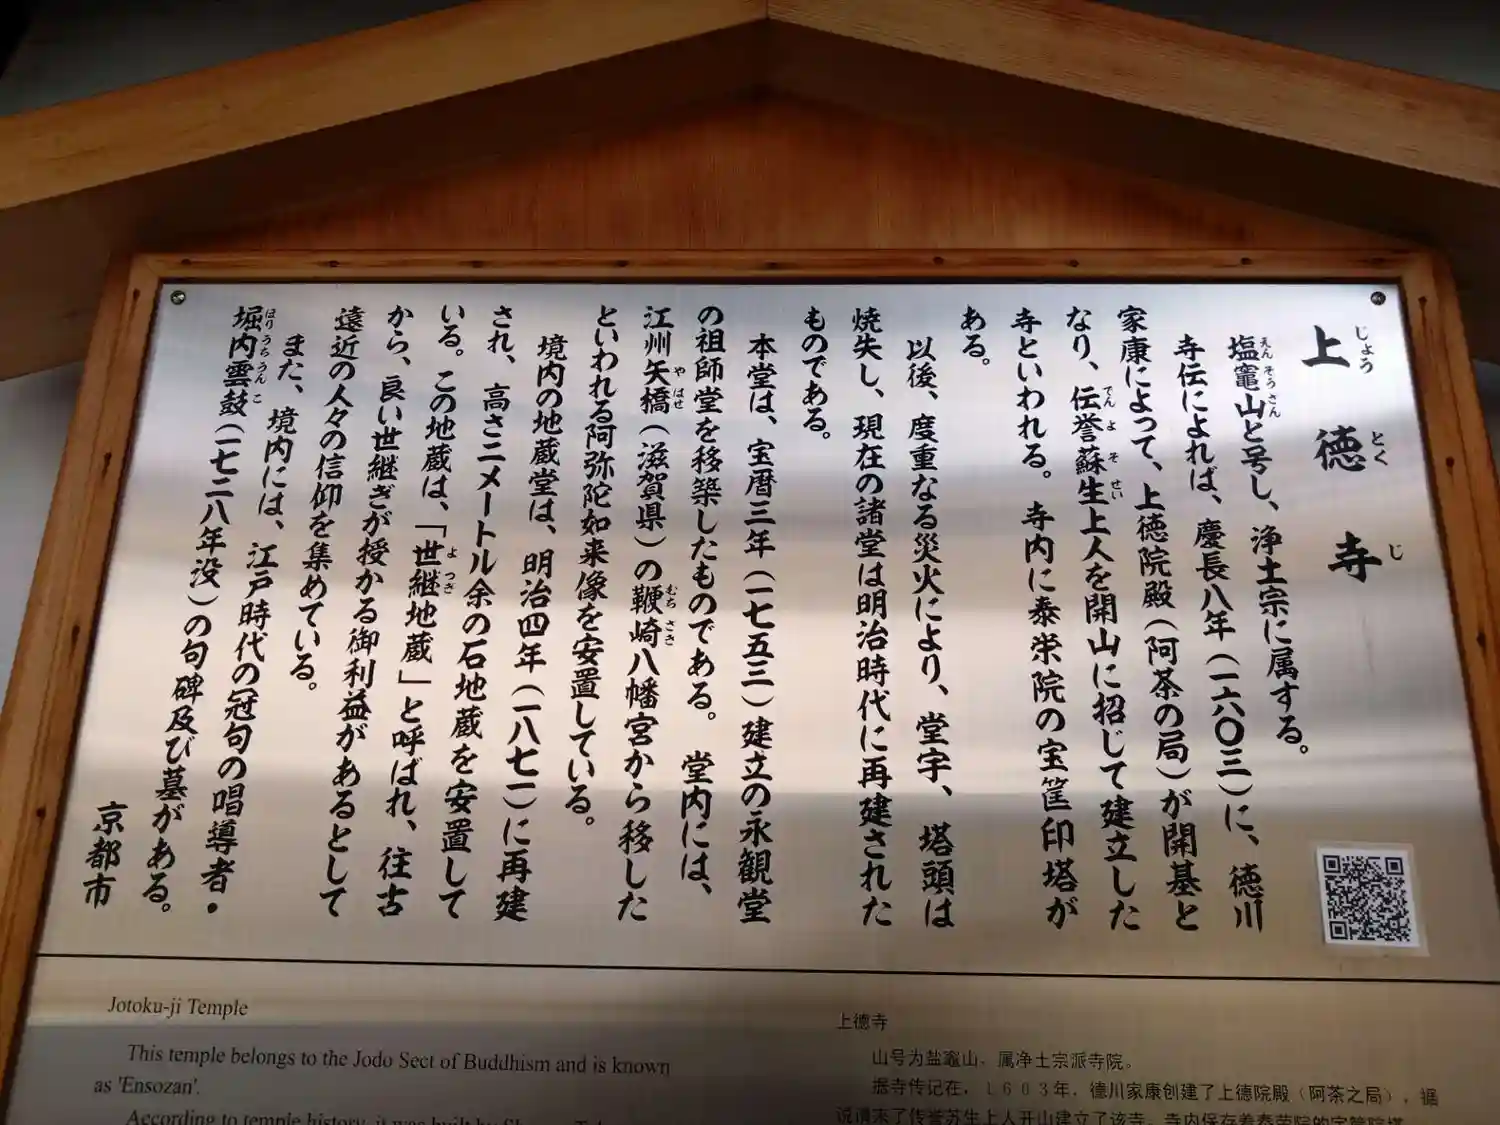 上徳寺
じょうとくじ
塩竈山と号し、浄土宗に属する。
えんそうさん
寺伝によれば、慶長八年(一六〇三)に、徳川
家康によって、上徳院殿(阿茶の局)が開基と
なり、伝誉蘇生上人を開山に招じて建立した
でんよそせい
寺といわれる。寺内に泰栄院の宝筐印塔が
ある。
以後、度重なる災火により、堂宇、塔頭は
焼失し、現在の諸堂は明治時代に再建された
ものである。
本堂は、宝暦三年(一七五三)建立の永観堂
の祖師堂を移築したものである。堂内には、
江州矢橋(滋賀県)の鞭崎八幡宮から移した
やはせ
むちさき
といわれる阿弥陀如来像を安置している。
境内の地蔵堂は、明治四年(一八七一)に再建
され、高さ二メートル余の石地蔵を安置して
いる。この地蔵は、「世継地蔵」と呼ばれ、往古
よつぎ
から、良い世継ぎが授かる御利益があるとして
遠近の人々の信仰を集めている。
また、境内には、江戸時代の冠句の唱導者・
堀内雲鼓(一七二八年没)の句碑及び墓がある。
ほりうちうんこ
京都市
Jotoku-ji Temple
This temple belongs to the Jodo Sect of Buddhism and is known
as 'Ensozan'.
According to temple history, it was built by
上德寺
山号为盐竈山、属净土宗派寺院。
据寺传记在，1603年，德川家康创建了上德院殿（阿茶之局），据
说请来了传誉苏生上人开山建立了该寺。寺内保存着泰荣院的宝箧印塔